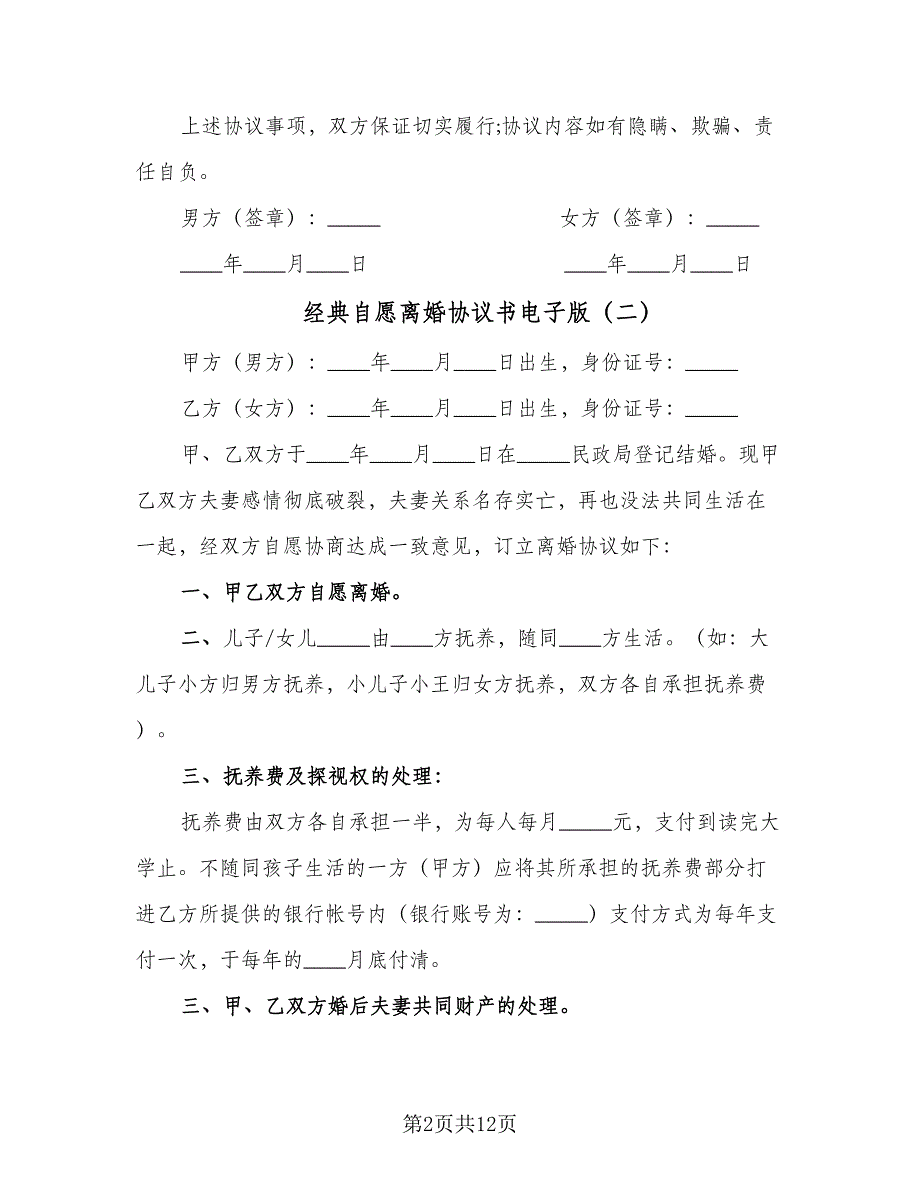 上述协议事项，双方保证切实履行;协议内容如有隐瞒、欺骗、责
任自负。
男方（签章）：_____ 女方（签章）：_____
____年____月____日 ____年____月____日
经典自愿离婚协议书电子版（二）
甲方（男方）：____年____月____日出生，身份证号：_____
乙方（女方）：____年____月____日出生，身份证号：_____
甲、乙双方于____年____月____日在_____民政局登记结婚。现甲
乙双方夫妻感情彻底破裂，夫妻关系名存实亡，再也没法共同生活在
一起，经双方自愿协商达成一致意见，订立离婚协议如下：
一、甲乙双方自愿离婚。
二、儿子/女儿_____由____方抚养，随同____方生活。（如：大
儿子小方归男方抚养，小儿子小王归女方抚养，双方各自承担抚养费
）。
三、抚养费及探视权的处理：
抚养费由双方各自承担一半，为每人每月_____元，支付到读完大
学止。不随同孩子生活的一方（甲方）应将其所承担的抚养费部分打
进乙方所提供的银行帐号内（银行账号为：_____）支付方式为每年支
付一次，于每年的____月底付清。
三、甲、乙双方婚后夫妻共同财产的处理。
第2页共12页